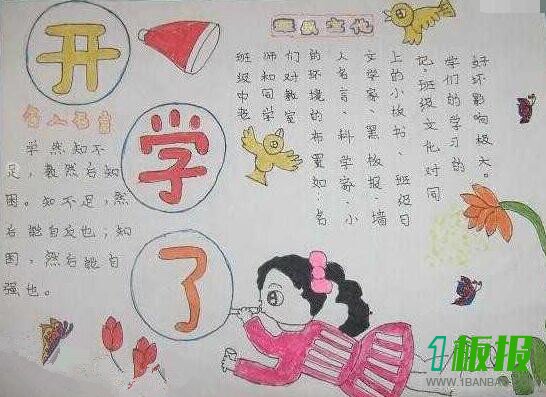 开
学
了
班级文化
名人名言
学然知不
足,教然后知
困。知不足,然
后能自反也;知
困,然后能自
强也。
班级中老
师和同学
们对教室
的环境的布置如:名
人名言、科学家、小
文学家、黑板报、墙
上的小板书、班级日
记。班级文化对同
学们的学习的
好坏影响极大。
1板报
WWW.1BANBAO.COM